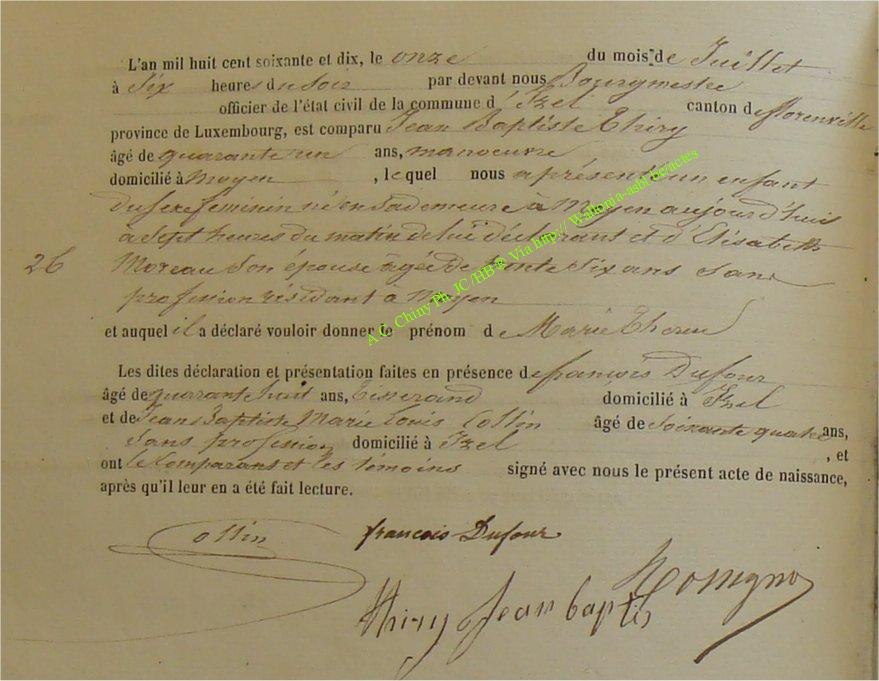 L'an mil huit cent soixante et dix, le onze du mois de Juillet
à Six heures du Soir par devant nous Bourgmestre
officier de l'état civil de la commune d'Izel canton de florenville
province de Luxembourg, est comparu Jean Baptiste Thiry
âgé de quarante un ans, manoeuvre
domicilié à Moyen , lequel nous a présenté un enfant
du sexe feminin né en sa demeure à Moyen aujourd'hui
à Sept heures du matin de lui déclarant et d'Elisabeth
26 Moreau Son épouse âgée de trente Six ans Sans
profession résidant à Moyen
et auquel il a déclaré vouloir donner le prénom de Marie Therese
Les dites déclaration et présentation faites en présence de françois Dufour
âgé de quarante huit ans, tisserand domicilié à Izel
et de Jean Baptiste Marie Louis Collin âgé de Soixante quatre ans,
Sans profession domicilié à Izel , et
ont le Comparant et les témoins signé avec nous le présent acte de naissance,
après qu'il leur en a été fait lecture.
francois Dufour
thiry Jean baptis
A.C. Chiny Ph. JC /HB® Via http:// Wallonia-asbl.be/actes